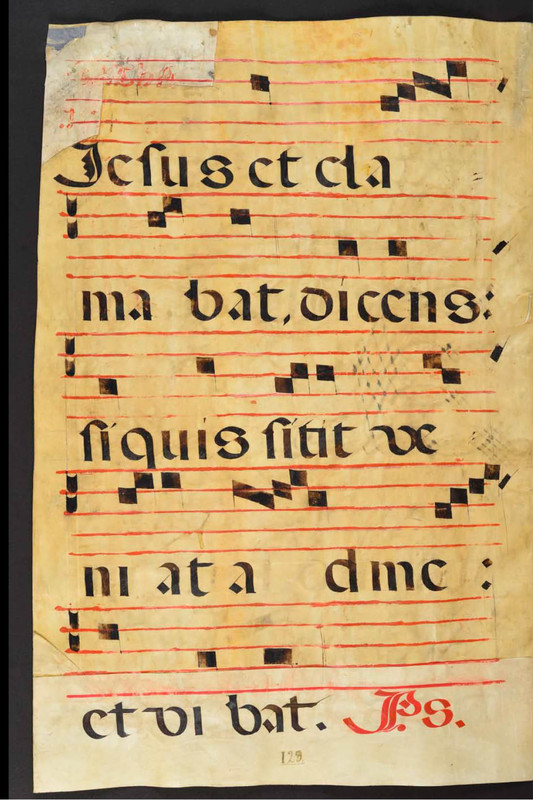 Jesus et cla
ma bat, dicens:
si quis sitit ve
ni at a d me :
et vi bat. Ps.
129